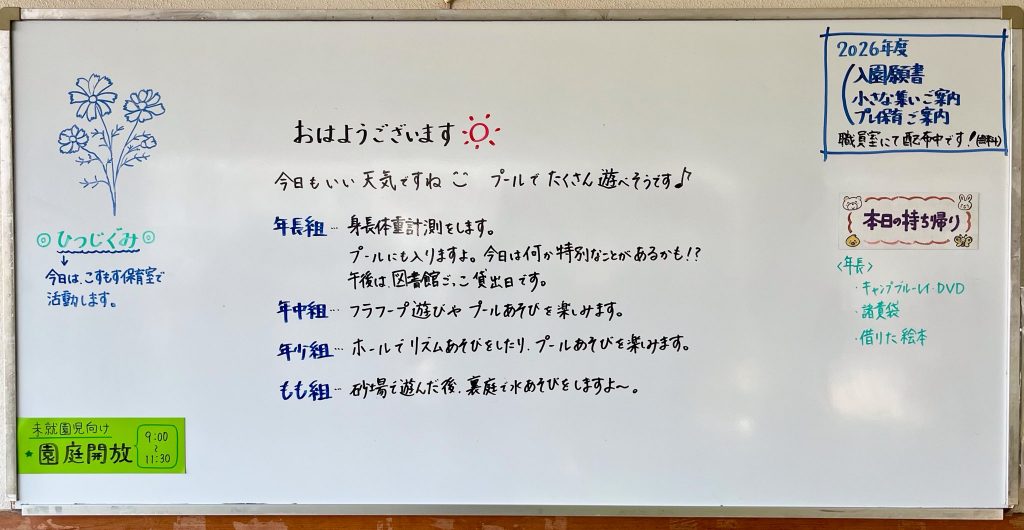 おはようございます
今日もいい天気ですね プールでたくさん遊べそうです♪
年長組… 身長体重計測をします。
プールにも入りますよ。今日は何か特別なことがあるかも!?
午後は、図書館ごっこ貸出日です。
年中組… フラフープ遊びやプールあそびを楽しみます。
年少組… ホールでリズムあそびをしたり、プールあそびを楽しみます。
もも組… 砂場で遊んだ後、裏庭で水あそびをしますよ〜。
◎ひつじぐみ◎
↓
今日は、こすもす保育室で
活動します。
未就園児向け
★園庭開放
9:00
〜
11:30
2026年度
入園願書
小さな集いご案内
プレ保育ご案内
職員室にて配布中です!(無料)
本日の持ち帰り
〈年長〉
・キャンプブルーレイ・DVD
・諸費袋
・借りた絵本